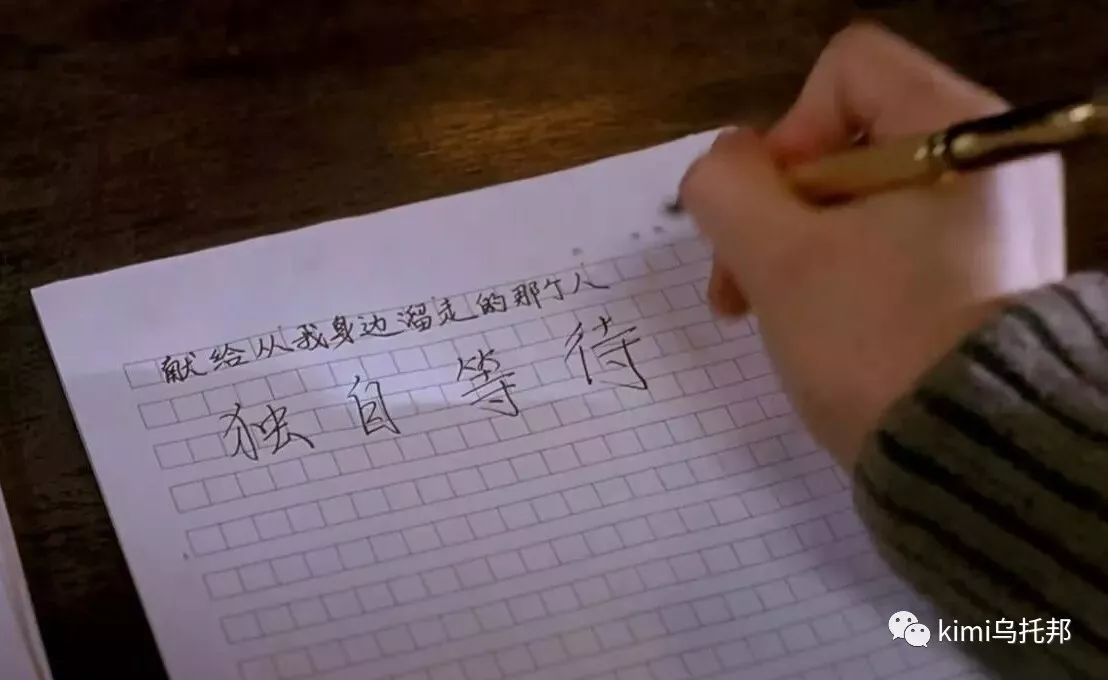 献给从我身边溜走的那个人
独自等待
kimi乌托邦